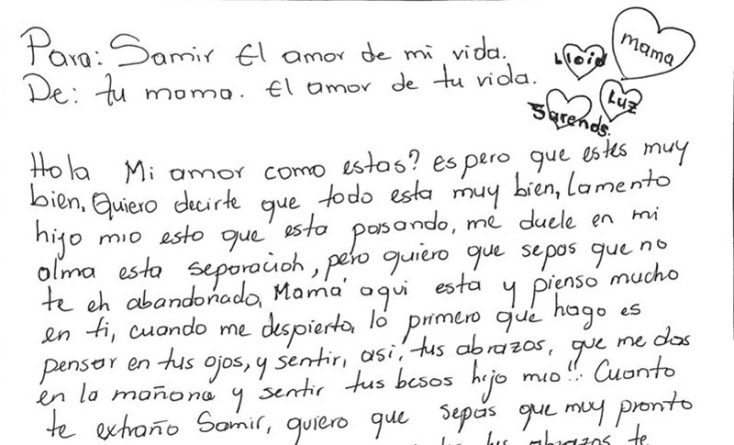 Para: Samir El amor de mi vida.
De: tu mama. El amor de tu vida.
Lloid
mama
Sarends.
Luz
Hola Mi amor como estas? espero que estés muy
bien, Quiero decirte que todo esta muy bien, Lamento
hijo mio esto que esta pasando, me duele en mi
alma esta separación, pero quiero que sepas que no
te eh abandonado, Mamá aqui esta y pienso mucho
en ti, cuando me despierto, lo primero que hago es
pensar en tus ojos, y sentir, asi, tus abrazos, que me das
en la mañana y sentir tus besos hijo mio!! Cuanto
te extraño Samir, quiero que sepas que muy pronto
tus abrazos te